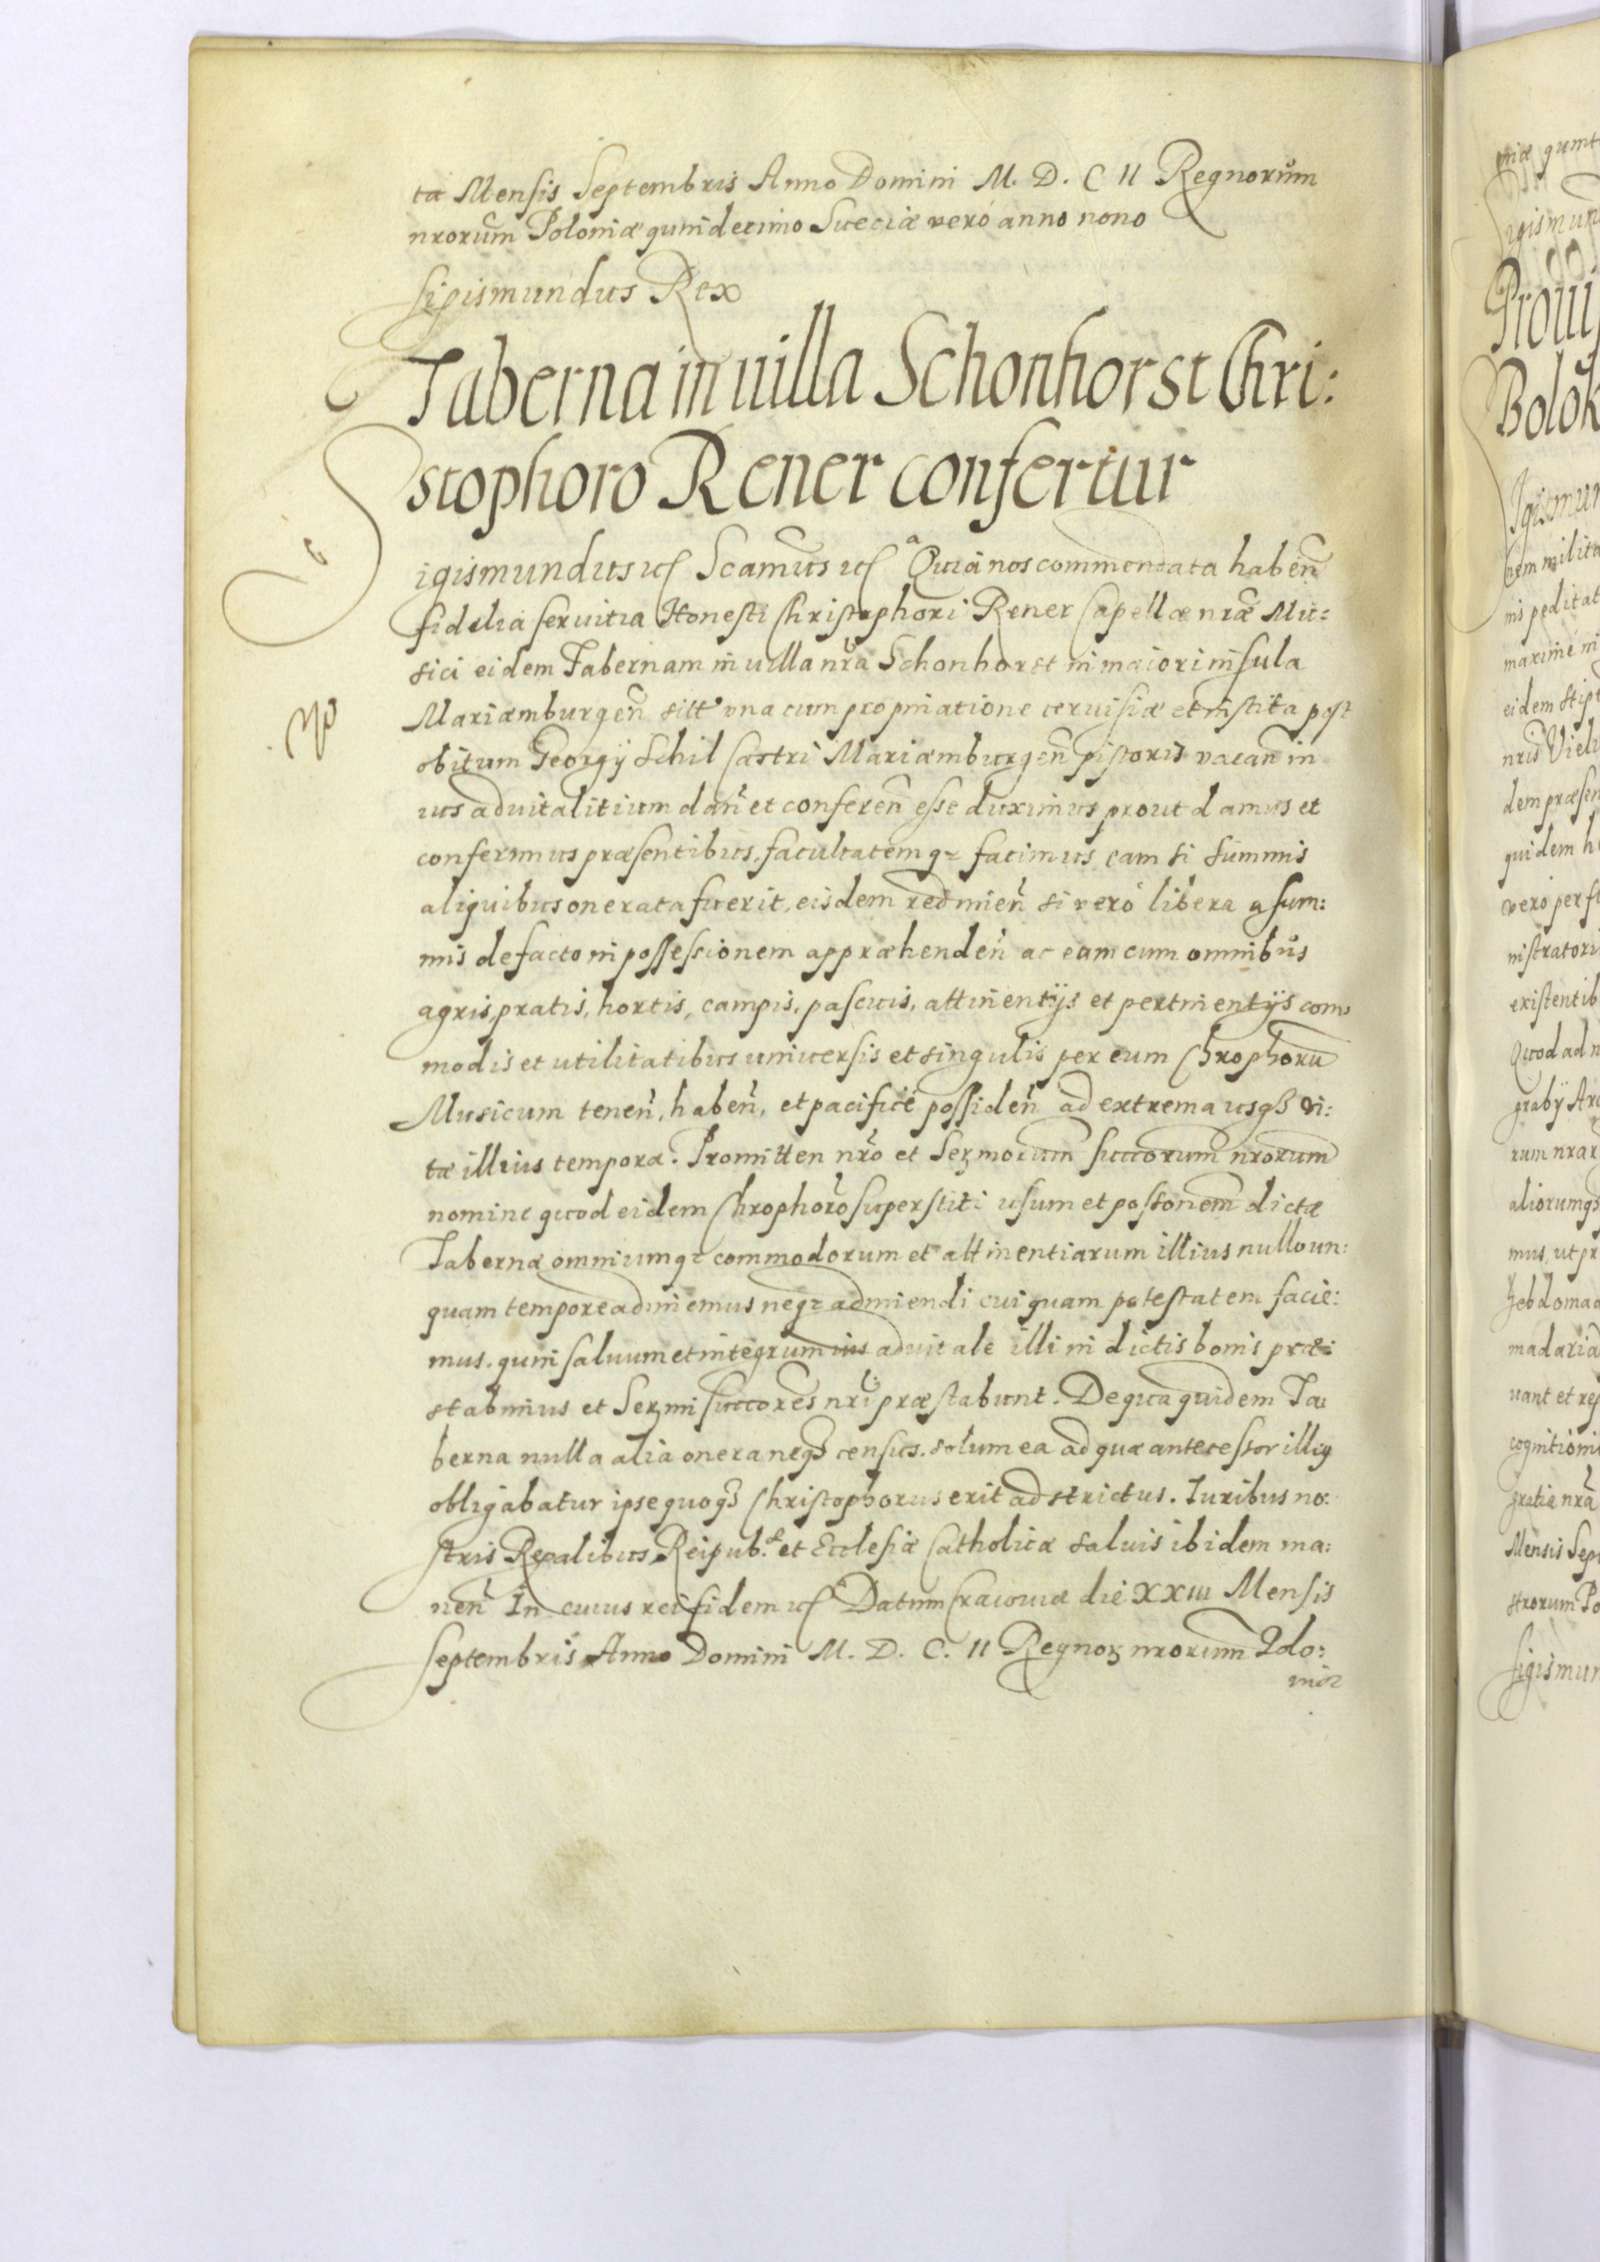 ta Mensis Septembris Anno Domini M. D. C II Regnorum
nrorum Poloniæ quindecimo Sueciæ vero anno nono
Sigismundus Rex
Taberna in uilla Schonhorst Chri:
stophoro Rener confertur
Sigismundus etc Scamus etc Quia nos commendata haben
fidelia seruitia Honesti Christophori Rener Capellæ nræ Mu:
sici eidem Tabernam in uilla nra Schonhorst in maiori insula
Mariæmburgen sitt una cum propinatione ceruisiæ et instita post
obitum Georgij Schil Castri Mariæmburgen pistoris vacan in
ius aduitalitium dan et conferen esse duximus prout damus et
conferimus præsentibus, facultatemq facimus eam si summis
aliquibus onerata fuerit, eisdem redimien si vero libera a sum:
mis de facto in possessionem appræhenden ac eam cum omnibus
agris, pratis, hortis, campis, pascuis, attinentijs et pertinentijs com
modis et utilitatibus uniuersis et singulis per eum Chrophoru
Musicum tenen, haben, et pacifice possiden ad extrema usq vi:
tæ illius tempora. Promitten nro et Sermorum succorum nrorum
nomine quod eidem Chrophoro superstiti usum et possonem dictæ
Tabernæ omniumq commodorum et attinentiarum illius nullo un:
quam tempore adimemus neq adimendi cuiquam potestatem facie:
mus. quin saluum et integrum ius aduitale illi in dictis bonis præ:
stabimus et Sermi succores nri præstabunt. De qua quidem Ta
berna nulla alia onera neq census. solum ea ad quæ antecessor illius
obligabatur ipse quoq Christophorus erit adstrictus. Iuribus no:
stris Regalibus, Reipub. et Ecclesiæ Catholicæ saluis ibidem ma:
nen In cuius rei fidem etc Datum Cracouiæ die XXIII Mensis
Septembris Anno Domini M. D. C. II Regnor nrorum Polo:
niæ